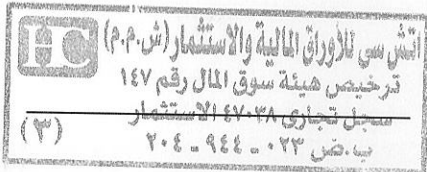 اتش سي للأوراق المالية والاستثمار (ش.م.م)
HC
ترخيص هيئة سوق المال رقم ١٤٧
سجل تجاري ٤٧٠٣٨ الاستثمار
ب.ض ٠٢٣ - ٩٤٤ - ٢٠٤
(٣)